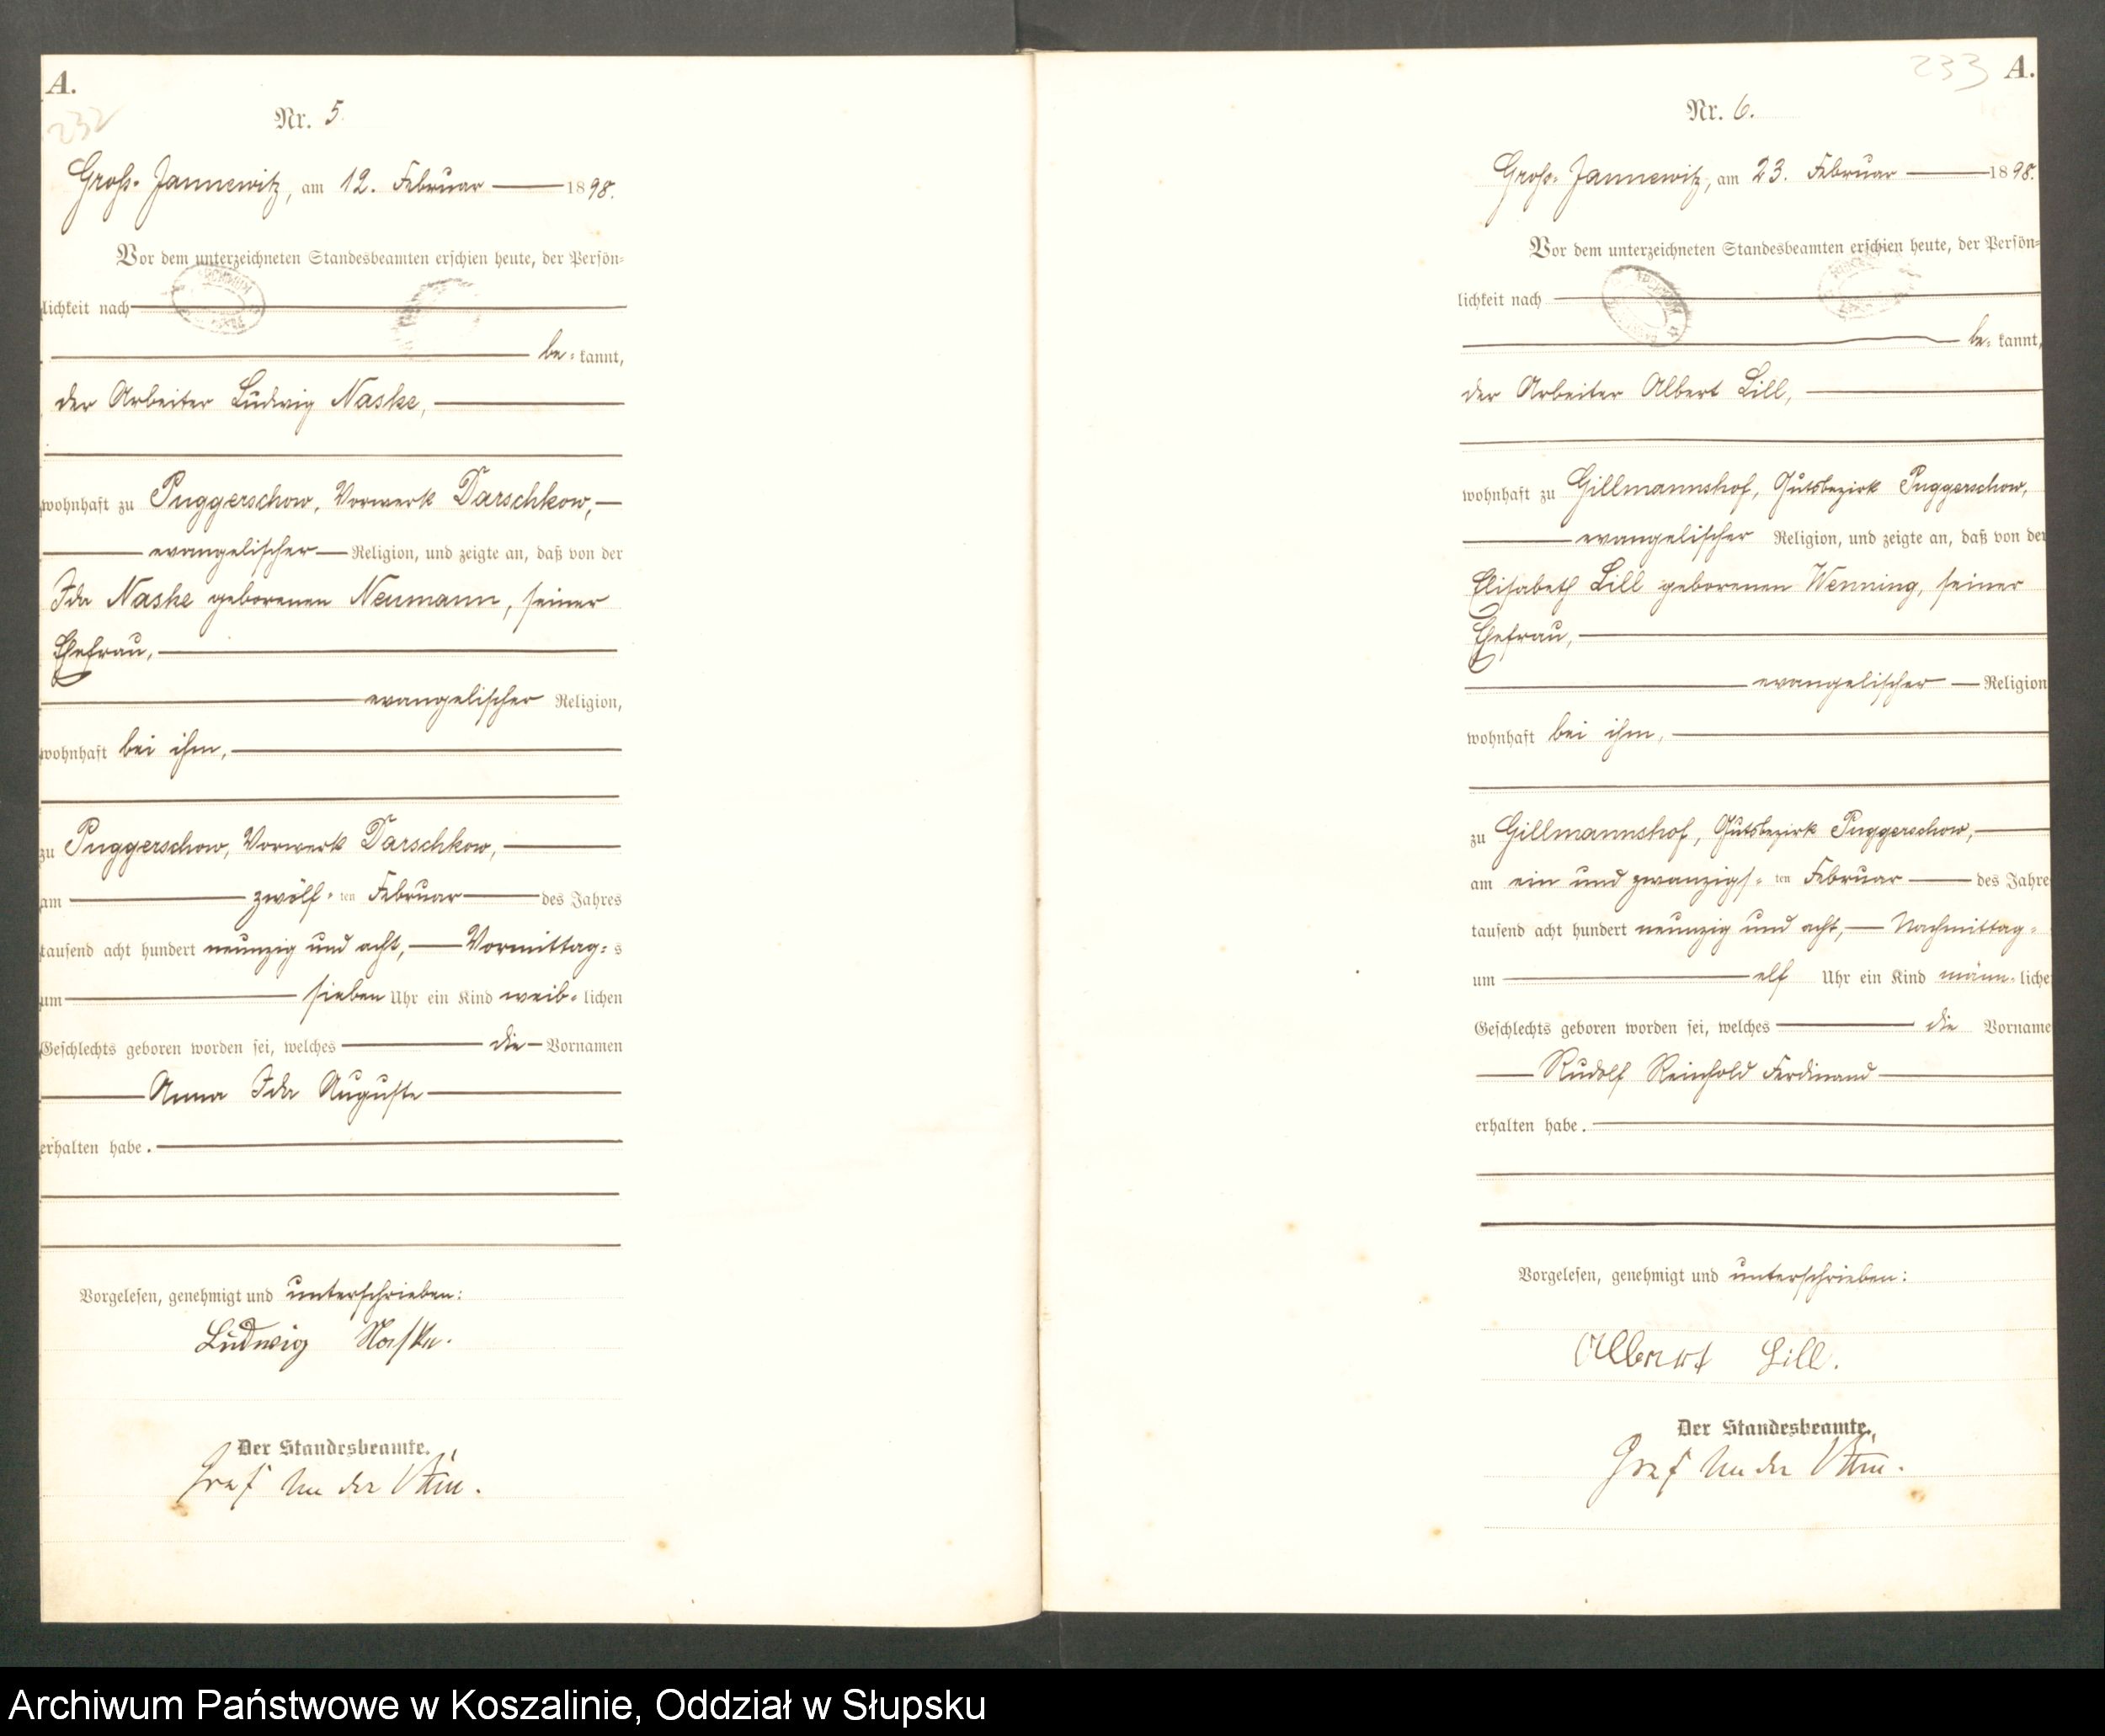 A.
232
Nr. 5.
Groß-Jannewitz, am 12. Februar 1898.
Vor dem unterzeichneten Standesbeamten erschien heute, der Persön-
lichkeit nach
be-kannt,
der Arbeiter Ludwig Naske,
wohnhaft zu Puggerschow, Vorwerk Darschkow,
evangelischer Religion, und zeigte an, daß von der
Ida Naske geborenen Neumann, seiner
Ehefrau,
evangelischer Religion,
wohnhaft bei ihm,
zu Puggerschow, Vorwerk Darschkow,
am zwölf-ten Februar des Jahres
tausend acht hundert neunzig und acht, Vormittag-s
um sieben Uhr ein Kind weib-lichen
Geschlechts geboren worden sei, welches die Vornamen
Anna Ida Auguste
erhalten habe.
Vorgelesen, genehmigt und unterschrieben:
Ludwig Naske.
Der Standesbeamte.
Graf
233 A.
Nr. 6.
Groß-Jannewitz, am 23. Februar 1898.
Vor dem unterzeichneten Standesbeamten erschien heute, der Persön-
lichkeit nach
be-kannt,
der Arbeiter Albert Lill,
wohnhaft zu Gillmannshof, Gutsbezirk Puggerschow,
evangelischer Religion, und zeigte an, daß von der
Elisabeth Lill geborenen Wenning, seiner
Ehefrau,
evangelischer Religion
wohnhaft bei ihm,
zu Gillmannshof, Gutsbezirk Puggerschow,
am ein und zwanzigs-ten Februar des Jahre
tausend acht hundert neunzig und acht, Nachmittag-
um elf Uhr ein Kind männ-liche
Geschlechts geboren worden sei, welches die Vorname
Rudolf Reinhold Ferdinand
erhalten habe.
Vorgelesen, genehmigt und unterschrieben:
Albert Lill.
Der Standesbeamte.
Graf
Archiwum Państwowe w Koszalinie, Oddział w Słupsku